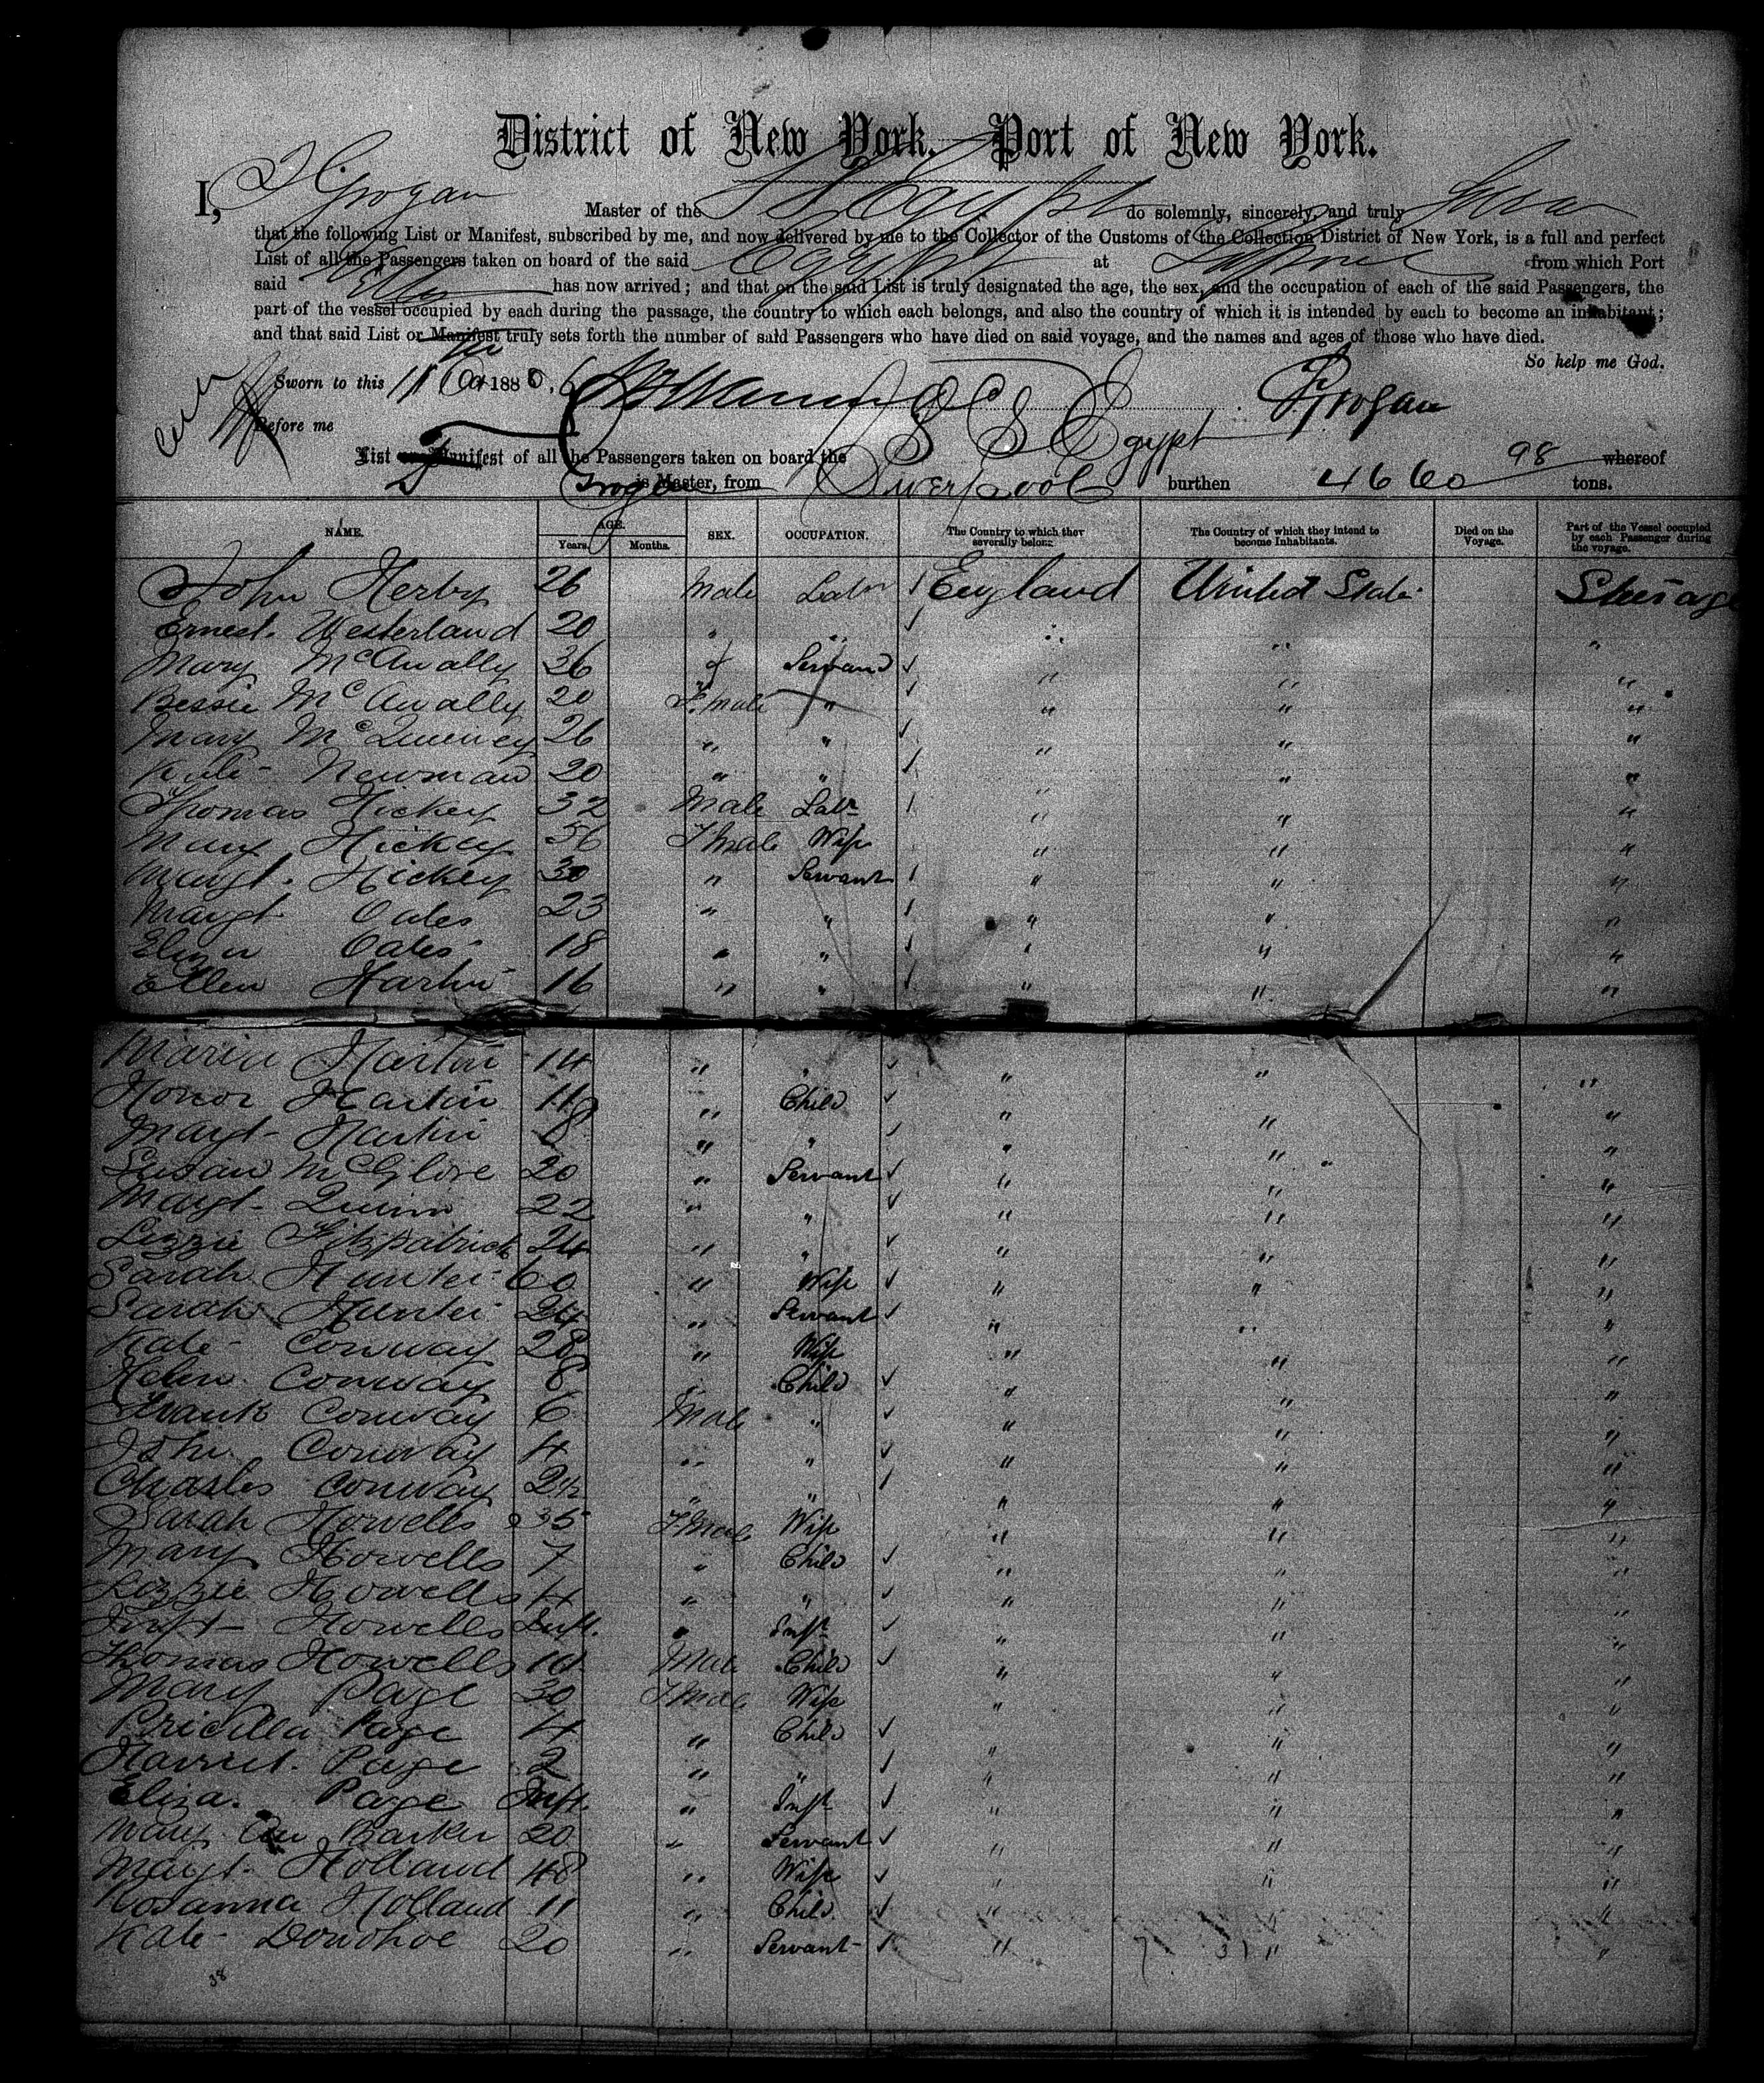 District of New York. Port of New York.
I, T Grogan Master of the SS Egypt do solemnly, sincerely, and truly swear
that the following List or Manifest, subscribed by me, and now delivered by me to the Collector of the Customs of the Collection District of New York, is a full and perfect
List of all the Passengers taken on board of the said Egypt at Liverpool from which Port
said has now arrived; and that on the said List is truly designated the age, the sex, and the occupation of each of the said Passengers, the
part of the vessel occupied by each during the passage, the country to which each belongs, and also the country of which it is intended by each to become an inhabitant;
and that said List or Manifest truly sets forth the number of said Passengers who have died on said voyage, and the names and ages of those who have died.
So help me God.
Sworn to this 11 Oct 1880, T Grogan
Before me
List or Manifest of all the Passengers taken on board the S S Egypt whereof
T Grogan is Master, from Liverpool burthen 4660 98 tons.
NAME. AGE. SEX. OCCUPATION. The Country to which they severally belong. The Country of which they intend to become Inhabitants. Died on the Voyage. Part of the Vessel occupied by each Passenger during the voyage.
Years. Months.
John Herby 26 Male Labr England United States Steerage
Ernest Westerland 20 " " " " "
Mary McAnally 36 f Servant " " "
Bessie McAnally 20 F.male " " " "
Mary McQueiney 26 " " " " "
Kate Newman 20 " " " " "
Thomas Hickey 32 Male Labr " " "
Mary Hickey 36 Fmale Wife " " "
Margt. Hickey 30 " Servant " " "
Margt. Oates 23 " " " " "
Eliza Oates 18 " " " " "
Ellen Hartin 16 " " " " "
Maria Hartin 14 " " " " "
Honor Hartin 11 " Child " " "
Margt Hartin 8 " " " " "
Susan McGlore 20 " Servant " " "
Margt Quinn 22 " " " " "
Lizzie Fitzpatrick 24 " " " " "
Sarah Hunter 60 " Wife " " "
Sarah Hunter 24 " Servant " " "
Kate Conway 28 " Wife " " "
Helen Conway 8 " Child " " "
Frank Conway 6 Male " " " "
John Conway 4 " " " " "
Charles Conway 2½ " " " " "
Sarah Howells 35 Fmale Wife " " "
Mary Howells 7 " Child " " "
Lizzie Howells 4 " " " " "
Inft Howells Inft. " Inft " " "
Thomas Howells 10 Male Child " " "
Mary Page 30 Fmale Wife " " "
Pricilla Page 4 " Child " " "
Harriet Page 2 " " " " "
Eliza Page Inft. " Inft " " "
Mary Ann Barker 20 " Servant " " "
Margt. Holland 48 " Wife " " "
Rosanna Holland 11 " Child " " "
Kate Donohoe 20 " Servant " " "
38